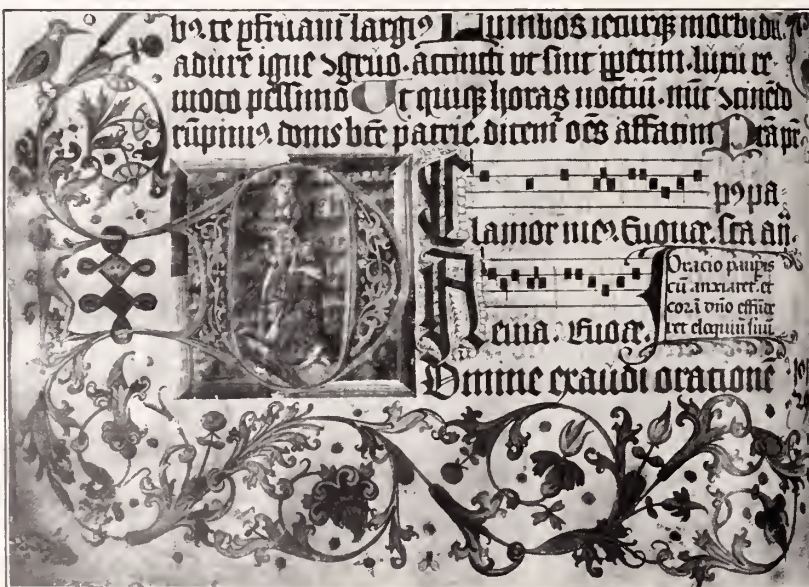 bꝰ. te pfruam̄ largiꝰ Lumbos iecurqꝫ morbidū
adure igne ↄgruo. accincti vt sint ꝑpetim. luxu re
moto pessimo Ut quiqꝫ horas noctiū. nūc ↄcinēdo
rūpimꝰ. donis btē patrie. ditem̄ oēs affatim
pꝰpa
Clamor meꝰ. Euouae. s̄cta añ
Oracio paupis
cū anxiaret. et
corā dn̄o effūde
ret eloquiū suū
Reina. Euouae.
Domine exaudi oratione